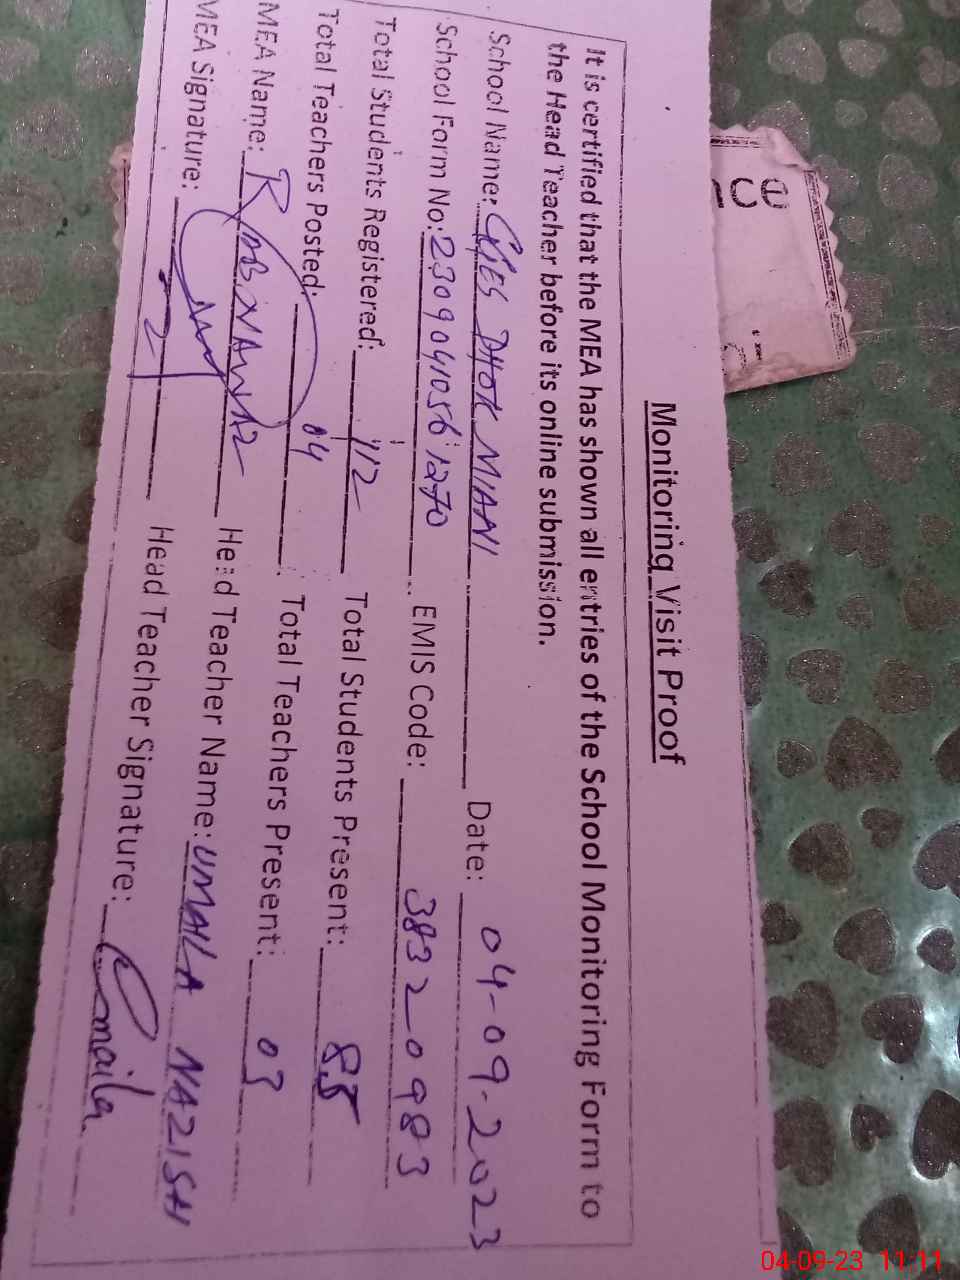 Monitoring Visit Proof
It is certified that the MEA has shown all entries of the School Monitoring Form to
the Head Teacher before its online submission.
School Name: GGES DHOK MIANI Date: 04-09-2023
School Form No: 2309041056 1270 EMIS Code: 38320983
Total Students Registered: 112 Total Students Present: 88
Total Teachers Posted: 04 Total Teachers Present: 03
MEA Name: RAB NAWAZ Head Teacher Name: UMAILA NAZISH
MEA Signature: Head Teacher Signature: Umaila
nce
04-09-23 11:11